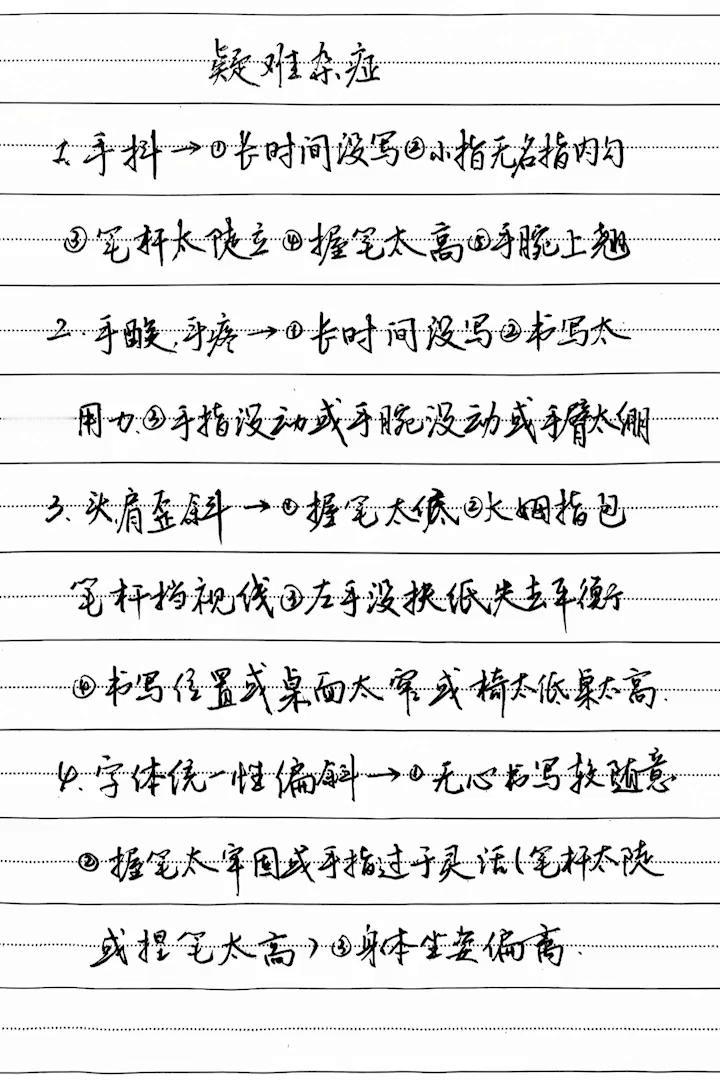 疑难杂症
1、手抖→①长时间没写②小指无名指内勾
③笔杆太陡立④握笔太高⑤手腕上翘
2.手酸,手疼→①长时间没写②书写太
用力.③手指没动或手腕没动或手臂太绷
3、头肩歪斜→①握笔太低②大姆指包
笔杆挡视线③左手没扶纸失去平衡
④书写位置或桌面太窄或椅太低桌太高.
4.字体统一性偏斜→①无心书写较随意
②握笔太牢固或手指过于灵活(笔杆太陡
或捏笔太高)③身体坐姿偏离.